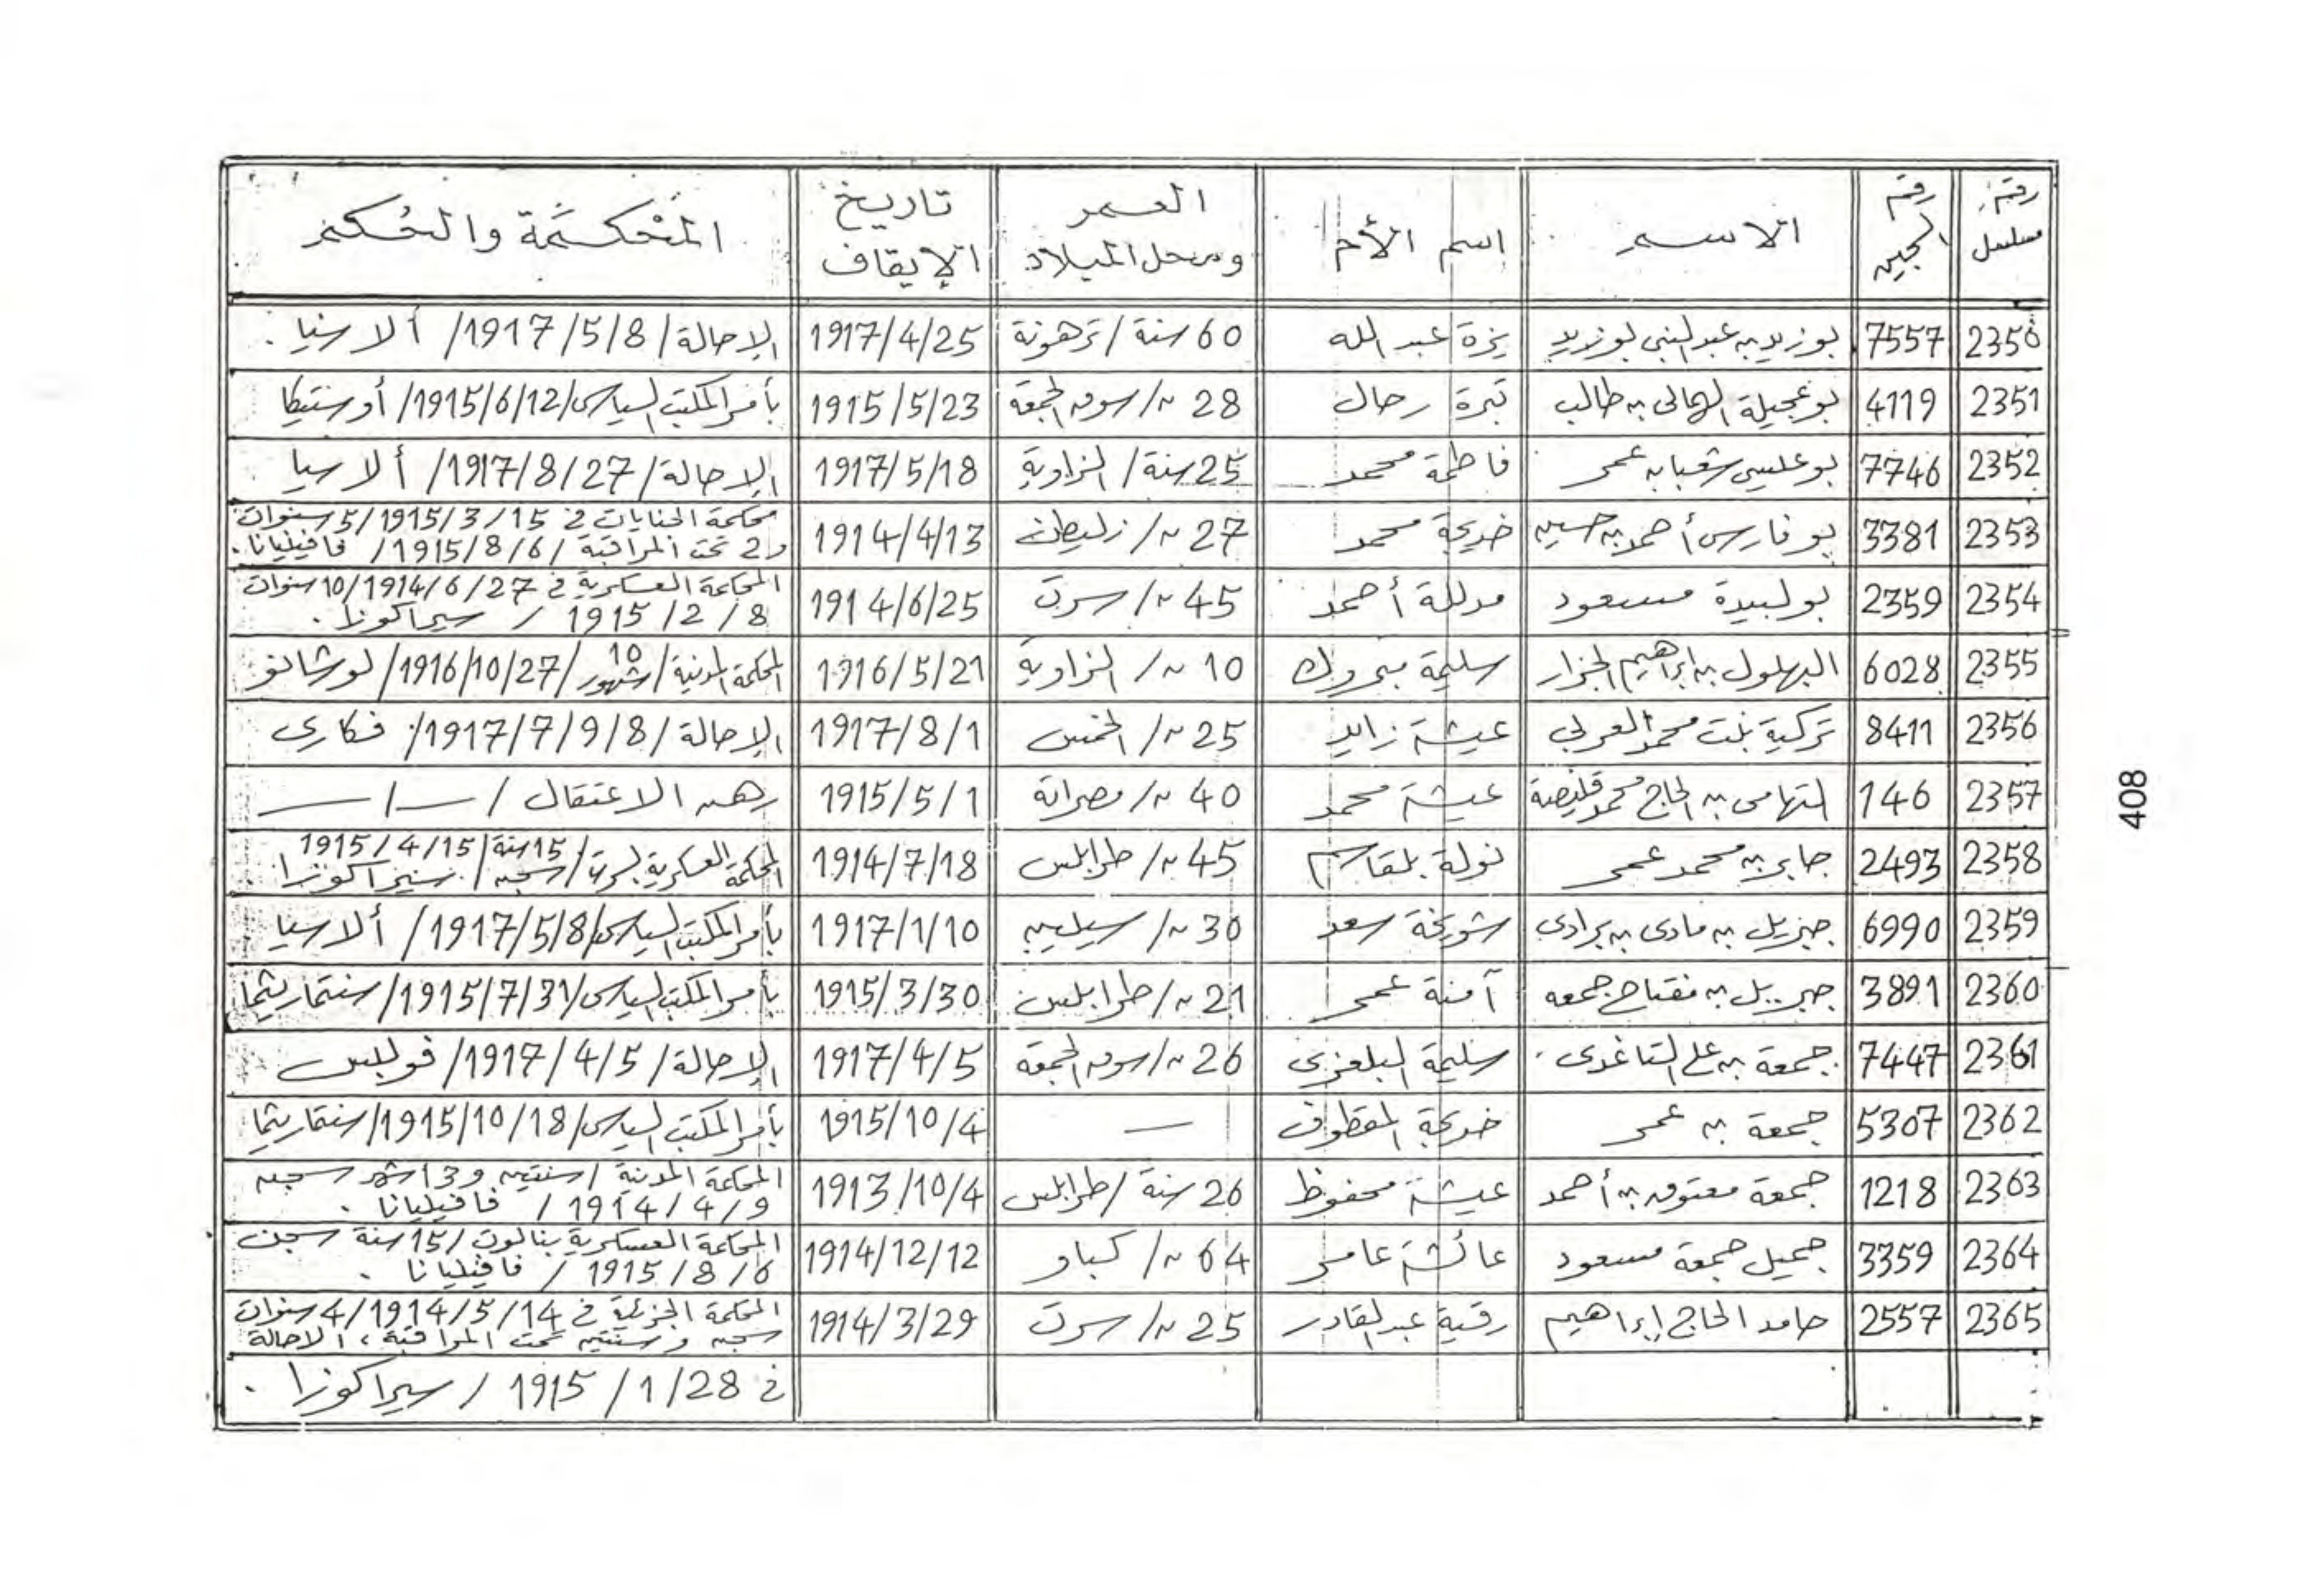 رقم مسلسل | رقم السجين | الاسم | اسم الأم | العمر ومحل الميلاد | تاريخ الإيقاف | المحكمة والحكم
2350 | 7557 | بوزيد بن عبد النبي بوزيد | يزة عبد الله | 60 سنة / ترهونة | 1917/4/25 | الإحالة / 1917/5/8 / ألارسيا .
2351 | 4119 | بوعجيلة الهمالى بن طالب | تبرة رحال | 28 ~/ سوق الجمعة | 1915/5/23 | بأمر المكتب السياسى / 1915/6/12 / أوستيكا
2352 | 7746 | بوعيسى شعبان عمر | فاطمة محمد | 25 سنة / الزاوية | 1917/5/18 | الإحالة / 1917/8/27 / ألارسيا .
2353 | 3381 | بوفارس أحمد بن حسين | خديجة محمد | 27 ~/ زليطن | 1914/4/13 | محكمة الجنايات في 1915/3/15 / 5 سنوات
و2 تحت المراقبة / 1915/8/6 / فافينيانا .
2354 | 2359 | بولبيدة مسعود | مدللة أحمد | 45 ~/ سرت | 1914/6/25 | المحكمة العسكرية في 1914/6/27 / 10 سنوات
1915/2/8 / سيراكوزا .
2355 | 6028 | البهلول بن إبراهيم الجزار | سليمة مبروك | 10 ~/ الزاوية | 1916/5/21 | المحكمة المدنية / 10 شهور / 1916/10/27 / لوشانو
2356 | 8411 | تركية بنت محمد العربي | عيشة زايد | 25 ~/ الخمس | 1917/8/1 | الإحالة / 1917/7/9/8 / فكارى
2357 | 146 | التهامى بن الحاج محمد قليصة | عيشة محمد | 40 ~/ مصراتة | 1915/5/1 | رهن الاعتقال / — / —
2358 | 2493 | جابر بن محمد عمر | نولة بلقاسم | 45 ~/ طرابلس | 1914/7/18 | المحكمة العسكرية لسرت / 15 سنة سجن / 1915/4/15 / سيراكوزا .
2359 | 6990 | جبريل بن مادى بن برادى | شويخة سعد | 30 ~/ سيليبي | 1917/1/10 | بأمر المكتب السياسى / 1917/5/8 / ألارسيا
2360 | 3891 | جبريل بن مفتاح جمعه | آمنة عمر | 21 ~/ طرابلس | 1915/3/30 | بأمر المكتب السياسى / 1915/7/31 / سنتماريثما
2361 | 7447 | جمعة بن على التاغدى . | سليمة البلعزى | 26 ~/ سوق الجمعة | 1917/4/5 | الإحالة / 1917/4/5 / فوليس
2362 | 5307 | جمعة بن عمر | خديجة المقطوف | — | 1915/10/4 | بأمر المكتب السياسى / 1915/10/18 / سنتماريثما
2363 | 1218 | جمعة معتوق بن أحمد | عيشة محفوظ | 26 سنة / طرابلس | 1913/10/4 | المحكمة المدنية / سنتين و3 اشهر سجن
1914/4/9 / فافينيانا .
2364 | 3359 | جميل جمعة مسعود | عائشة عامر | 64 ~/ كباو | 1914/12/12 | المحكمة العسكرية بنالوت / 15 سنة سجن
1915/8/6 / فافينيانا .
2365 | 2557 | حامد الحاج إبراهيم | رقية عبد القادر | 25 ~/ سرت | 1914/3/29 | المحكمة الجزئية في 1914/5/14 / 4 سنوات
سجن وسنتين تحت المراقبة ، الاحالة
في 1915/1/28 / سيراكوزا .
408